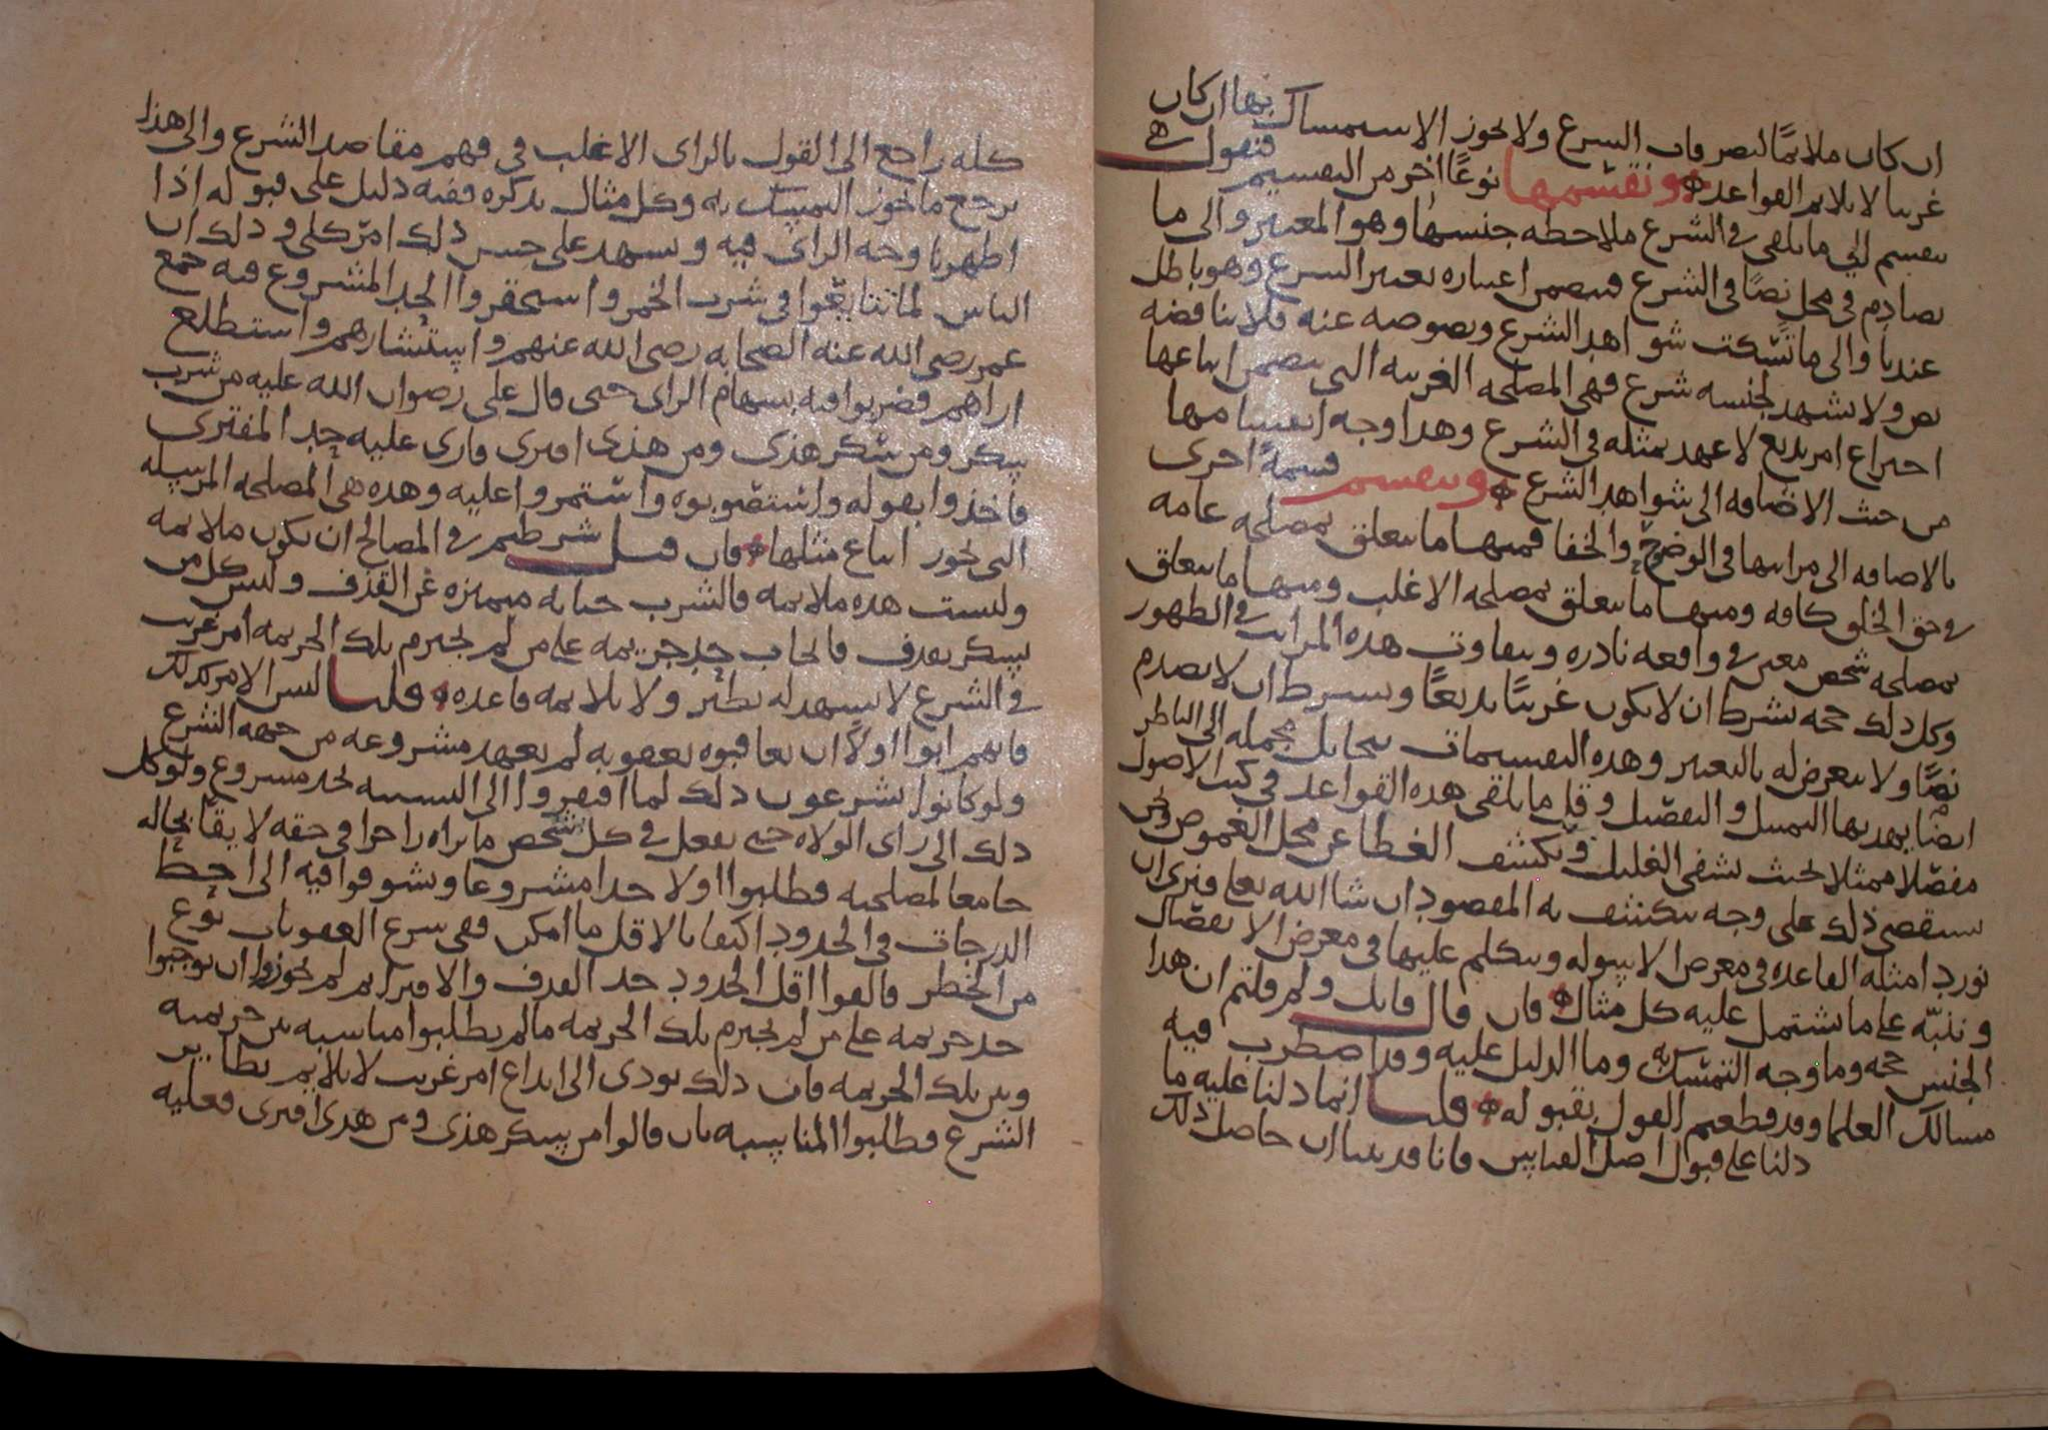 ان كان ملائما لتصرفات الشرع ولا يجوز الاستمساك بها ان كان
غريبا لا يلائم القواعد ونقسمها نوعًا اخر من التقسيم فنقول هي
تنقسم الي ما يلفى في الشرع ملاحظه جنسها وهو المعتبر والى ما
يصادم في محل نصًا في الشرع فيضمن اعتباره تغيير الشرع وهو باطل
عندنا والى ما تسكت شواهد الشرع ونصوصه عنه فلا يناقضه
نص ولا يشهد لجنسه شرع فهي المصلحه الغريبه التي يتضمن اتباعها
احتراع امر بديع لا عهد بمثله في الشرع وهذا وجه انقسامها
من حيث الاضافه الى شواهد الشرع وتنقسم قسمةً اخرى
بالاضافه الى مراتبها في الوضوح والخفا فمنها ما يتعلق بمصلحه عامه
في حق الخلق كافه ومنها ما يتعلق بمصلحه الاغلب ومنها ما يتعلق
بمصلحه شخص معين في واقعه نادره وتتفاوت هذه المراتب في الظهور
وكل ذلك حجه بشرط ان لا يكون غريبًا بديعًا وبشرط ان لا يصدم
نصًا ولا يتعرض له بالتغيير وهذه التقسيمات تتخايل مجمله الى الناظر
ايضًا يهديها التمثيل والتفصيل وقل ما يلفى هذه القواعد في كتب الاصول
مفصلا ممثلا بحيث يشفى الغليل ويكشف الغطا عن محل الغموض ونحن
نستقصي ذلك على وجه ينكشف به المقصود ان شا الله تعلى ونرى ان
نورد امثله القاعده في معرض الاسوله ونتكلم عليها في معرض الانفصال
وننبه على ما يشتمل عليه كل مثال فان قال قايل ولم قلتم ان هذا
الجنس حجه وما وجه التمسك به وما الدليل عليه وقد اضطرب فيه
مسالك العلما وقد قطعتم القول بقبوله قلنا انما دلنا عليه ما
دلنا على قبول اصل القياس فانا قد بينا ان حاصل ذلك
كله راجع الى القول بالراى الاغلب في فهم مقاصد الشرع والى هذا
يرجع ما يجوز التمسك به وكل مثال نذكره ففيه دليل على قبوله اذا
اظهرنا وجه الراى فيه ويشهد على جنس ذلك امر كلي وذلك ان
الناس لما تتايعوا في شرب الخمر واستحقروا الحد المشروع فيه جمع
عمر رضى الله عنه الصحابه رضى الله عنهم واستشارهم واستطلع
اراهم فضربوا فيه بسهام الراى حتى قال على رضوان الله عليه من شرب
سكر ومن سكر هذى ومن هذى افترى فارى عليه حد المفترى
فاخذوا بقوله واستصوبوه واستمروا عليه وهذه هي المصلحه المرسله
التى يجوز اتباع مثلها فان قيل شرطتم في المصالح ان تكون ملايمه
وليست هذه ملايمه فالشرب جنايه متميزه عن القذف وليس كل من
يسكر يقذف فايجاب حد جريمه على من لم يجترم تلك الجريمه امر غريب
في الشرع لا يشهد له نظير ولا يلايمه قاعده قلنا ليس الامر كذلك
فانهم ابوا اولًا ان يعاقبوه بعقوبه لم يعهد مشروعه من جهه الشرع
ولو كانوا يشرعون ذلك لما افتقروا الى التشبيه بحد مشروع ولوكل
ذلك الى راى الولاه حتى يفعل في كل شخص ما يراه زاجرا في حقه لايقا بحاله
جامعا لمصلحته فطلبوا اولا حدا مشروعا وتشوفوا فيه الى احط
الدرجات في الحدود اكتفا بالاقل ما امكن ففي شرع العقوبات نوع
من الخطر فالفوا اقل الحدود حد القذف والافترا ثم لم يجوزوا ان يوجبوا
حد جريمه على من لم يجترم تلك الجريمه ما لم يطلبوا مناسبه بين جريمته
وبين تلك الجريمه فان ذلك يودى الى ابداع امر غريب لا يلايم نظاير
الشرع فطلبوا المناسبه بان قالوا من سكر هذى ومن هذى افترى فعليه